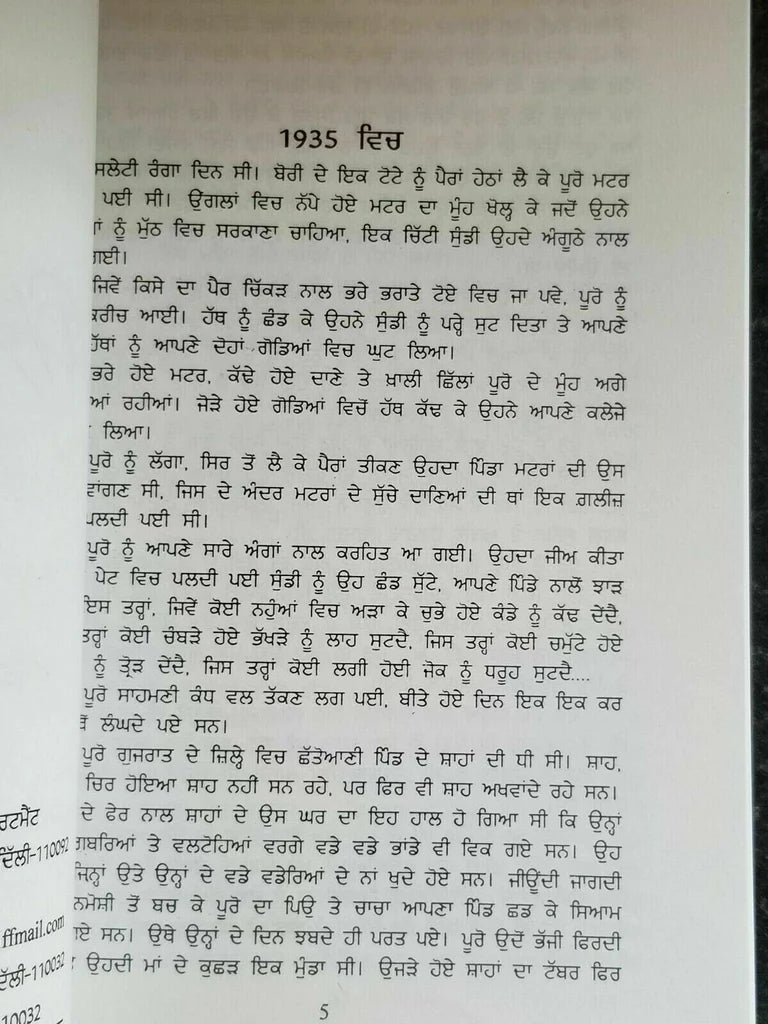 1935 ਵਿਚ
ਸਲੇਟੀ ਰੰਗਾ ਦਿਨ ਸੀ। ਬੋਰੀ ਦੇ ਇਕ ਟੋਟੇ ਨੂੰ ਪੈਰਾਂ ਹੇਠਾਂ ਲੈ ਕੇ ਪੂਰੋ ਮਟਰ
ਪਈ ਸੀ। ਉਂਗਲਾਂ ਵਿਚ ਨੱਪੇ ਹੋਏ ਮਟਰ ਦਾ ਮੂੰਹ ਖੋਲ੍ਹ ਕੇ ਜਦੋਂ ਉਹਨੇ
ਨੂੰ ਮੁੱਠ ਵਿਚ ਸਰਕਾਣਾ ਚਾਹਿਆ, ਇਕ ਚਿੱਟੀ ਸੁੰਡੀ ਉਹਦੇ ਅੰਗੂਠੇ ਨਾਲ
ਗਈ।
ਜਿਵੇਂ ਕਿਸੇ ਦਾ ਪੈਰ ਚਿੱਕੜ ਨਾਲ ਭਰੇ ਭਰਾਤੇ ਟੋਏ ਵਿਚ ਜਾ ਪਵੇ, ਪੂਰੋ ਨੂੰ
ਕਰੀਚ ਆਈ। ਹੱਥ ਨੂੰ ਛੰਡ ਕੇ ਉਹਨੇ ਸੁੰਡੀ ਨੂੰ ਪਰ੍ਹੇ ਸੁਟ ਦਿਤਾ ਤੇ ਆਪਣੇ
ਹੱਥਾਂ ਨੂੰ ਆਪਣੇ ਦੋਹਾਂ ਗੋਡਿਆਂ ਵਿਚ ਘੁਟ ਲਿਆ।
ਭਰੇ ਹੋਏ ਮਟਰ, ਕੱਢੇ ਹੋਏ ਦਾਣੇ ਤੇ ਖ਼ਾਲੀ ਛਿੱਲਾਂ ਪੂਰੋ ਦੇ ਮੂੰਹ ਅਗੇ
ਰਹੀਆਂ। ਜੋੜੇ ਹੋਏ ਗੋਡਿਆਂ ਵਿਚੋਂ ਹੱਥ ਕੱਢ ਕੇ ਉਹਨੇ ਆਪਣੇ ਕਲੇਜੇ
ਲਿਆ।
ਪੂਰੋ ਨੂੰ ਲੱਗਾ, ਸਿਰ ਤੋਂ ਲੈ ਕੇ ਪੈਰਾਂ ਤੀਕਣ ਉਹਦਾ ਪਿੰਡਾ ਮਟਰਾਂ ਦੀ ਉਸ
ਵਾਂਗਣ ਸੀ, ਜਿਸ ਦੇ ਅੰਦਰ ਮਟਰਾਂ ਦੇ ਸੁੱਚੇ ਦਾਣਿਆਂ ਦੀ ਥਾਂ ਇਕ ਗ਼ਲੀਜ਼
ਪਲਦੀ ਪਈ ਸੀ।
ਪੂਰੋ ਨੂੰ ਆਪਣੇ ਸਾਰੇ ਅੰਗਾਂ ਨਾਲ ਕਰਹਿਤ ਆ ਗਈ। ਉਹਦਾ ਜੀਅ ਕੀਤਾ
ਪੇਟ ਵਿਚ ਪਲਦੀ ਪਈ ਸੁੰਡੀ ਨੂੰ ਉਹ ਛੰਡ ਸੁੱਟੇ, ਆਪਣੇ ਪਿੰਡੇ ਨਾਲੋਂ ਝਾੜ
ਇਸ ਤਰ੍ਹਾਂ, ਜਿਵੇਂ ਕੋਈ ਨਹੁੰਆਂ ਵਿਚ ਅੜਾ ਕੇ ਚੁਭੇ ਹੋਏ ਕੰਡੇ ਨੂੰ ਕੱਢ ਦੇਂਦੈ,
ਤਰ੍ਹਾਂ ਕੋਈ ਚੰਬੜੇ ਹੋਏ ਭੱਖੜੇ ਨੂੰ ਲਾਹ ਸੁਟਦੈ, ਜਿਸ ਤਰ੍ਹਾਂ ਕੋਈ ਚਮੁੱਟੇ ਹੋਏ
ਨੂੰ ਤ੍ਰੋੜ ਦੇਂਦੈ, ਜਿਸ ਤਰ੍ਹਾਂ ਕੋਈ ਲਗੀ ਹੋਈ ਜੋਕ ਨੂੰ ਧਰੂਹ ਸੁਟਦੈ....
ਪੂਰੋ ਸਾਹਮਣੀ ਕੰਧ ਵਲ ਤੱਕਣ ਲਗ ਪਈ, ਬੀਤੇ ਹੋਏ ਦਿਨ ਇਕ ਇਕ ਕਰ
ਲੰਘਦੇ ਪਏ ਸਨ।
ਪੂਰੋ ਗੁਜਰਾਤ ਦੇ ਜ਼ਿਲ੍ਹੇ ਵਿਚ ਛੱਤੋਆਣੀ ਪਿੰਡ ਦੇ ਸ਼ਾਹਾਂ ਦੀ ਧੀ ਸੀ। ਸ਼ਾਹ,
ਚਿਰ ਹੋਇਆ ਸ਼ਾਹ ਨਹੀਂ ਸਨ ਰਹੇ, ਪਰ ਫਿਰ ਵੀ ਸ਼ਾਹ ਅਖਵਾਂਦੇ ਰਹੇ ਸਨ।
ਦੇ ਫੇਰ ਨਾਲ ਸ਼ਾਹਾਂ ਦੇ ਉਸ ਘਰ ਦਾ ਇਹ ਹਾਲ ਹੋ ਗਿਆ ਸੀ ਕਿ ਉਨ੍ਹਾਂ
ਗਬਰਿਆਂ ਤੇ ਵਲਟੋਹਿਆਂ ਵਰਗੇ ਵਡੇ ਵਡੇ ਭਾਂਡੇ ਵੀ ਵਿਕ ਗਏ ਸਨ। ਉਹ
ਜਿਨ੍ਹਾਂ ਉਤੇ ਉਨ੍ਹਾਂ ਦੇ ਵਡੇ ਵਡੇਰਿਆਂ ਦੇ ਨਾਂ ਖੁਦੇ ਹੋਏ ਸਨ। ਜੀਉਂਦੀ ਜਾਗਦੀ
ਨਮੋਸ਼ੀ ਤੋਂ ਬਚ ਕੇ ਪੂਰੋ ਦਾ ਪਿਉ ਤੇ ਚਾਚਾ ਆਪਣਾ ਪਿੰਡ ਛਡ ਕੇ ਸਿਆਮ
ਸਨ। ਉਥੇ ਉਨ੍ਹਾਂ ਦੇ ਦਿਨ ਝਬਦੇ ਹੀ ਪਰਤ ਪਏ। ਪੂਰੋ ਉਦੋਂ ਭੱਜੀ ਫਿਰਦੀ
ਉਹਦੀ ਮਾਂ ਦੇ ਕੁਛੜ ਇਕ ਮੁੰਡਾ ਸੀ। ਉਜੜੇ ਹੋਏ ਸ਼ਾਹਾਂ ਦਾ ਟੱਬਰ ਫਿਰ
5
ਦਿੱਲੀ-110092
ffmail.com
ਦਿੱਲੀ-110032
10032